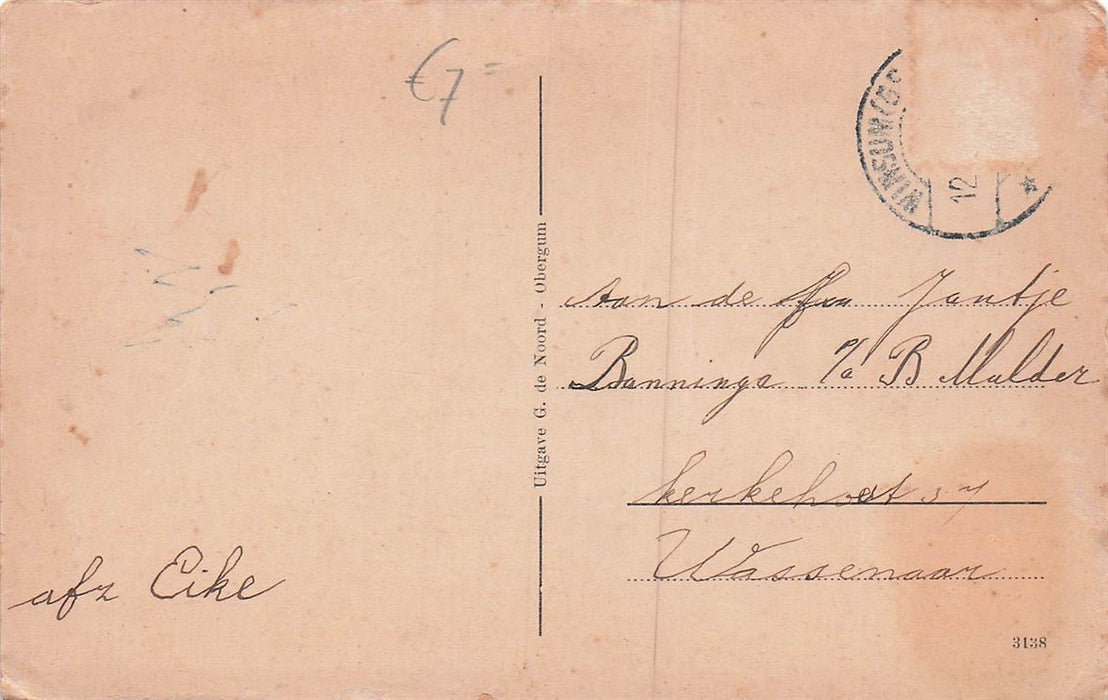 €7=
WINSUM (GR
12
Aan de Jantje
Banninga p/a B Mulder
kerkehout 37
Wassenaar
afz Eike
Uitgave G. de Noord - Obergum
3138